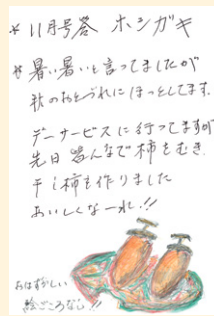 * 11月号答 ホシガキ
* 暑い暑いと言ってましたが
秋のおとづれにほっとしてます。
デーサービスに行ってますが
先日皆んなで柿をむき、
干し柿を作りました
おいしくなーれ!!
おはずかしい
絵ごころなし!!